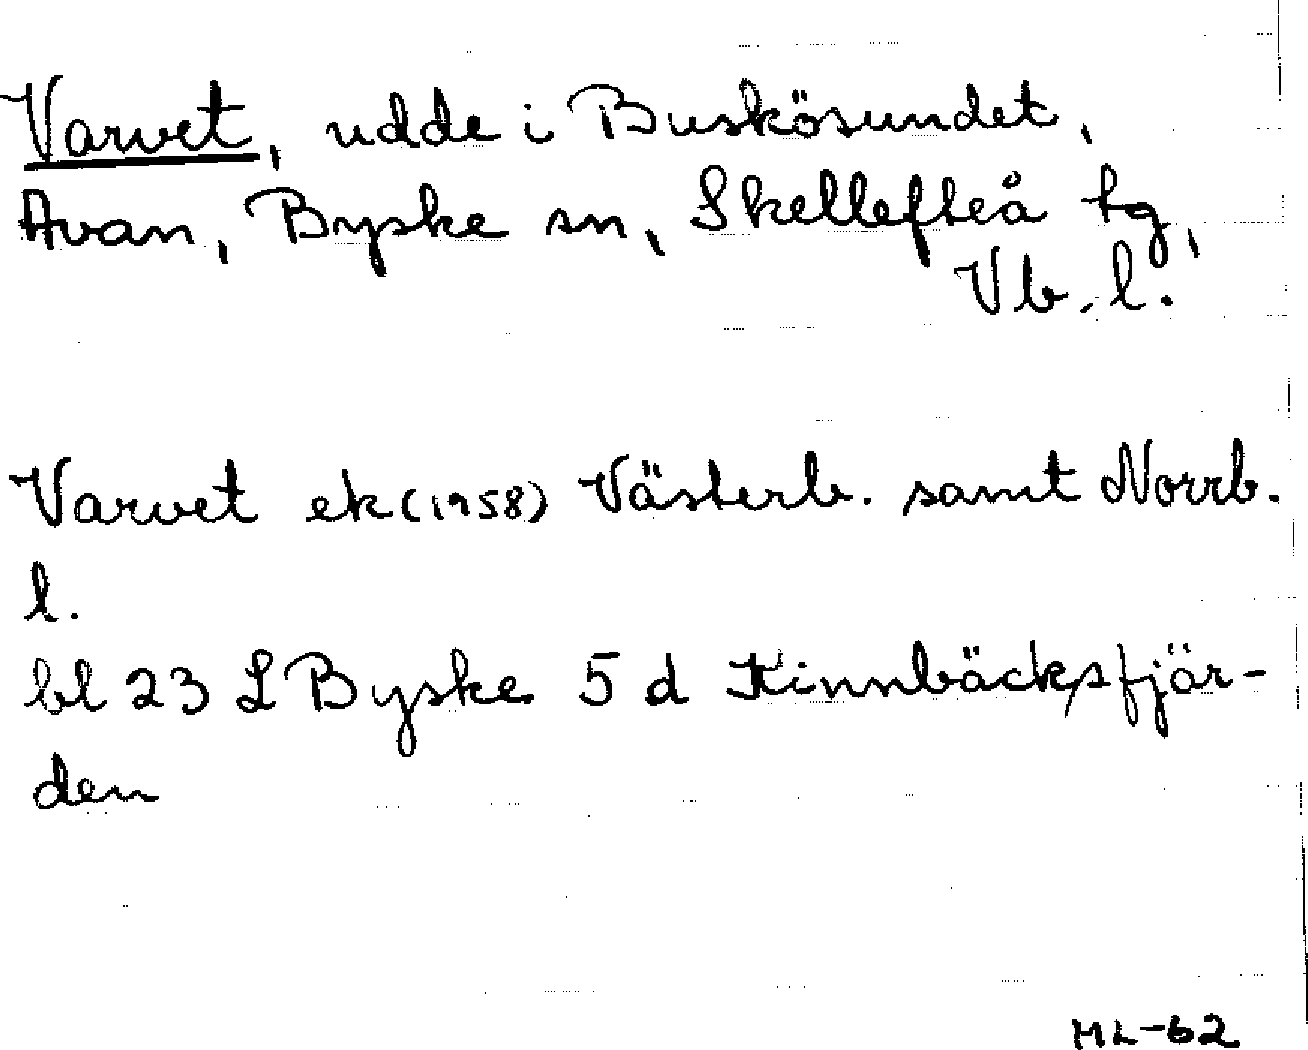 Varvet, udde i Buskösundet,
Avan, Byske sn, Skellefteå tg,
Vb. l.
Varvet ek (1958) Västerb. samt Norrb.
l.
bl 23 L Byske 5 d Kinnbäcksfjär-
den
ML-62